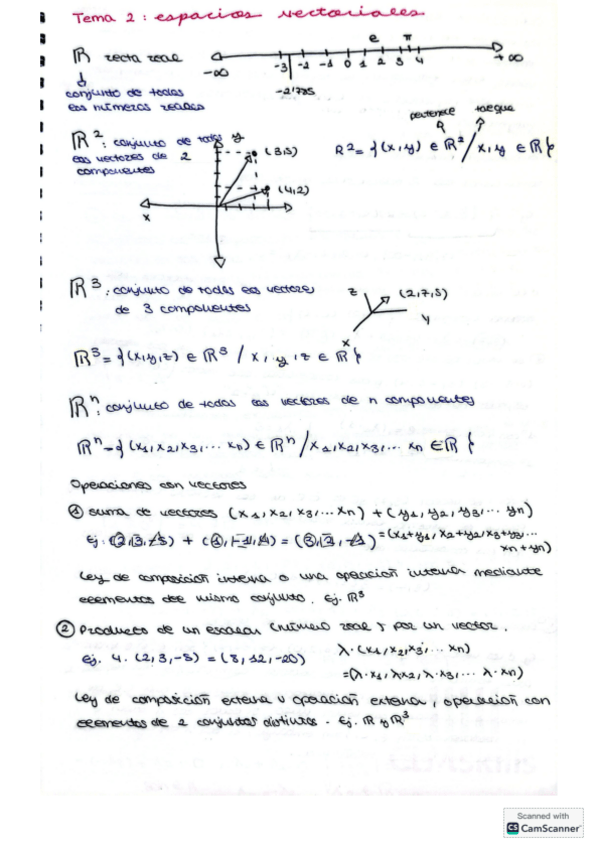 Tema 2: espacios vectoriales
ℝ recta real
-∞ -3 -2 -1 0 1 2 3 4 +∞
e π
conjunto de todos
los números reales
-2'785
pertenece tal que
ℝ²: conjunto de todos
los vectores de 2
componentes
y
(3,5)
(4,2)
x
ℝ² = {(x,y) ∈ ℝ² / x,y ∈ ℝ}
ℝ³: conjunto de todos los vectores
de 3 componentes
z (2,7,5)
y
x
ℝ³ = {(x,y,z) ∈ ℝ³ / x, y, z ∈ ℝ}
ℝⁿ: conjunto de todos los vectores de n componentes
ℝⁿ = {(x1, x2, x3, ... xn) ∈ ℝⁿ / x1, x2, x3, ... xn ∈ ℝ}
Operaciones con vectores
① suma de vectores (x1, x2, x3, ... xn) + (y1, y2, y3, ... yn)
= (x1+y1, x2+y2, x3+y3, ...
xn+yn)
Ej: (2, 3, -5) + (1, -1, 4) = (3, 2, -1)
Ley de composición interna o una operación interna mediante
elementos del mismo conjunto. Ej. ℝ³
② Producto de un escalar (número real) por un vector.
ej. 4. (2, 3, -5) = (8, 12, -20)
λ · (x1, x2, x3, ... xn)
= (λ · x1, λx2, λ · x3, ... λ · xn)
Ley de composición externa u operación externa, operación con
elementos de 2 conjuntos distintos. Ej. ℝ y ℝ³
Scanned with
CS CamScanner